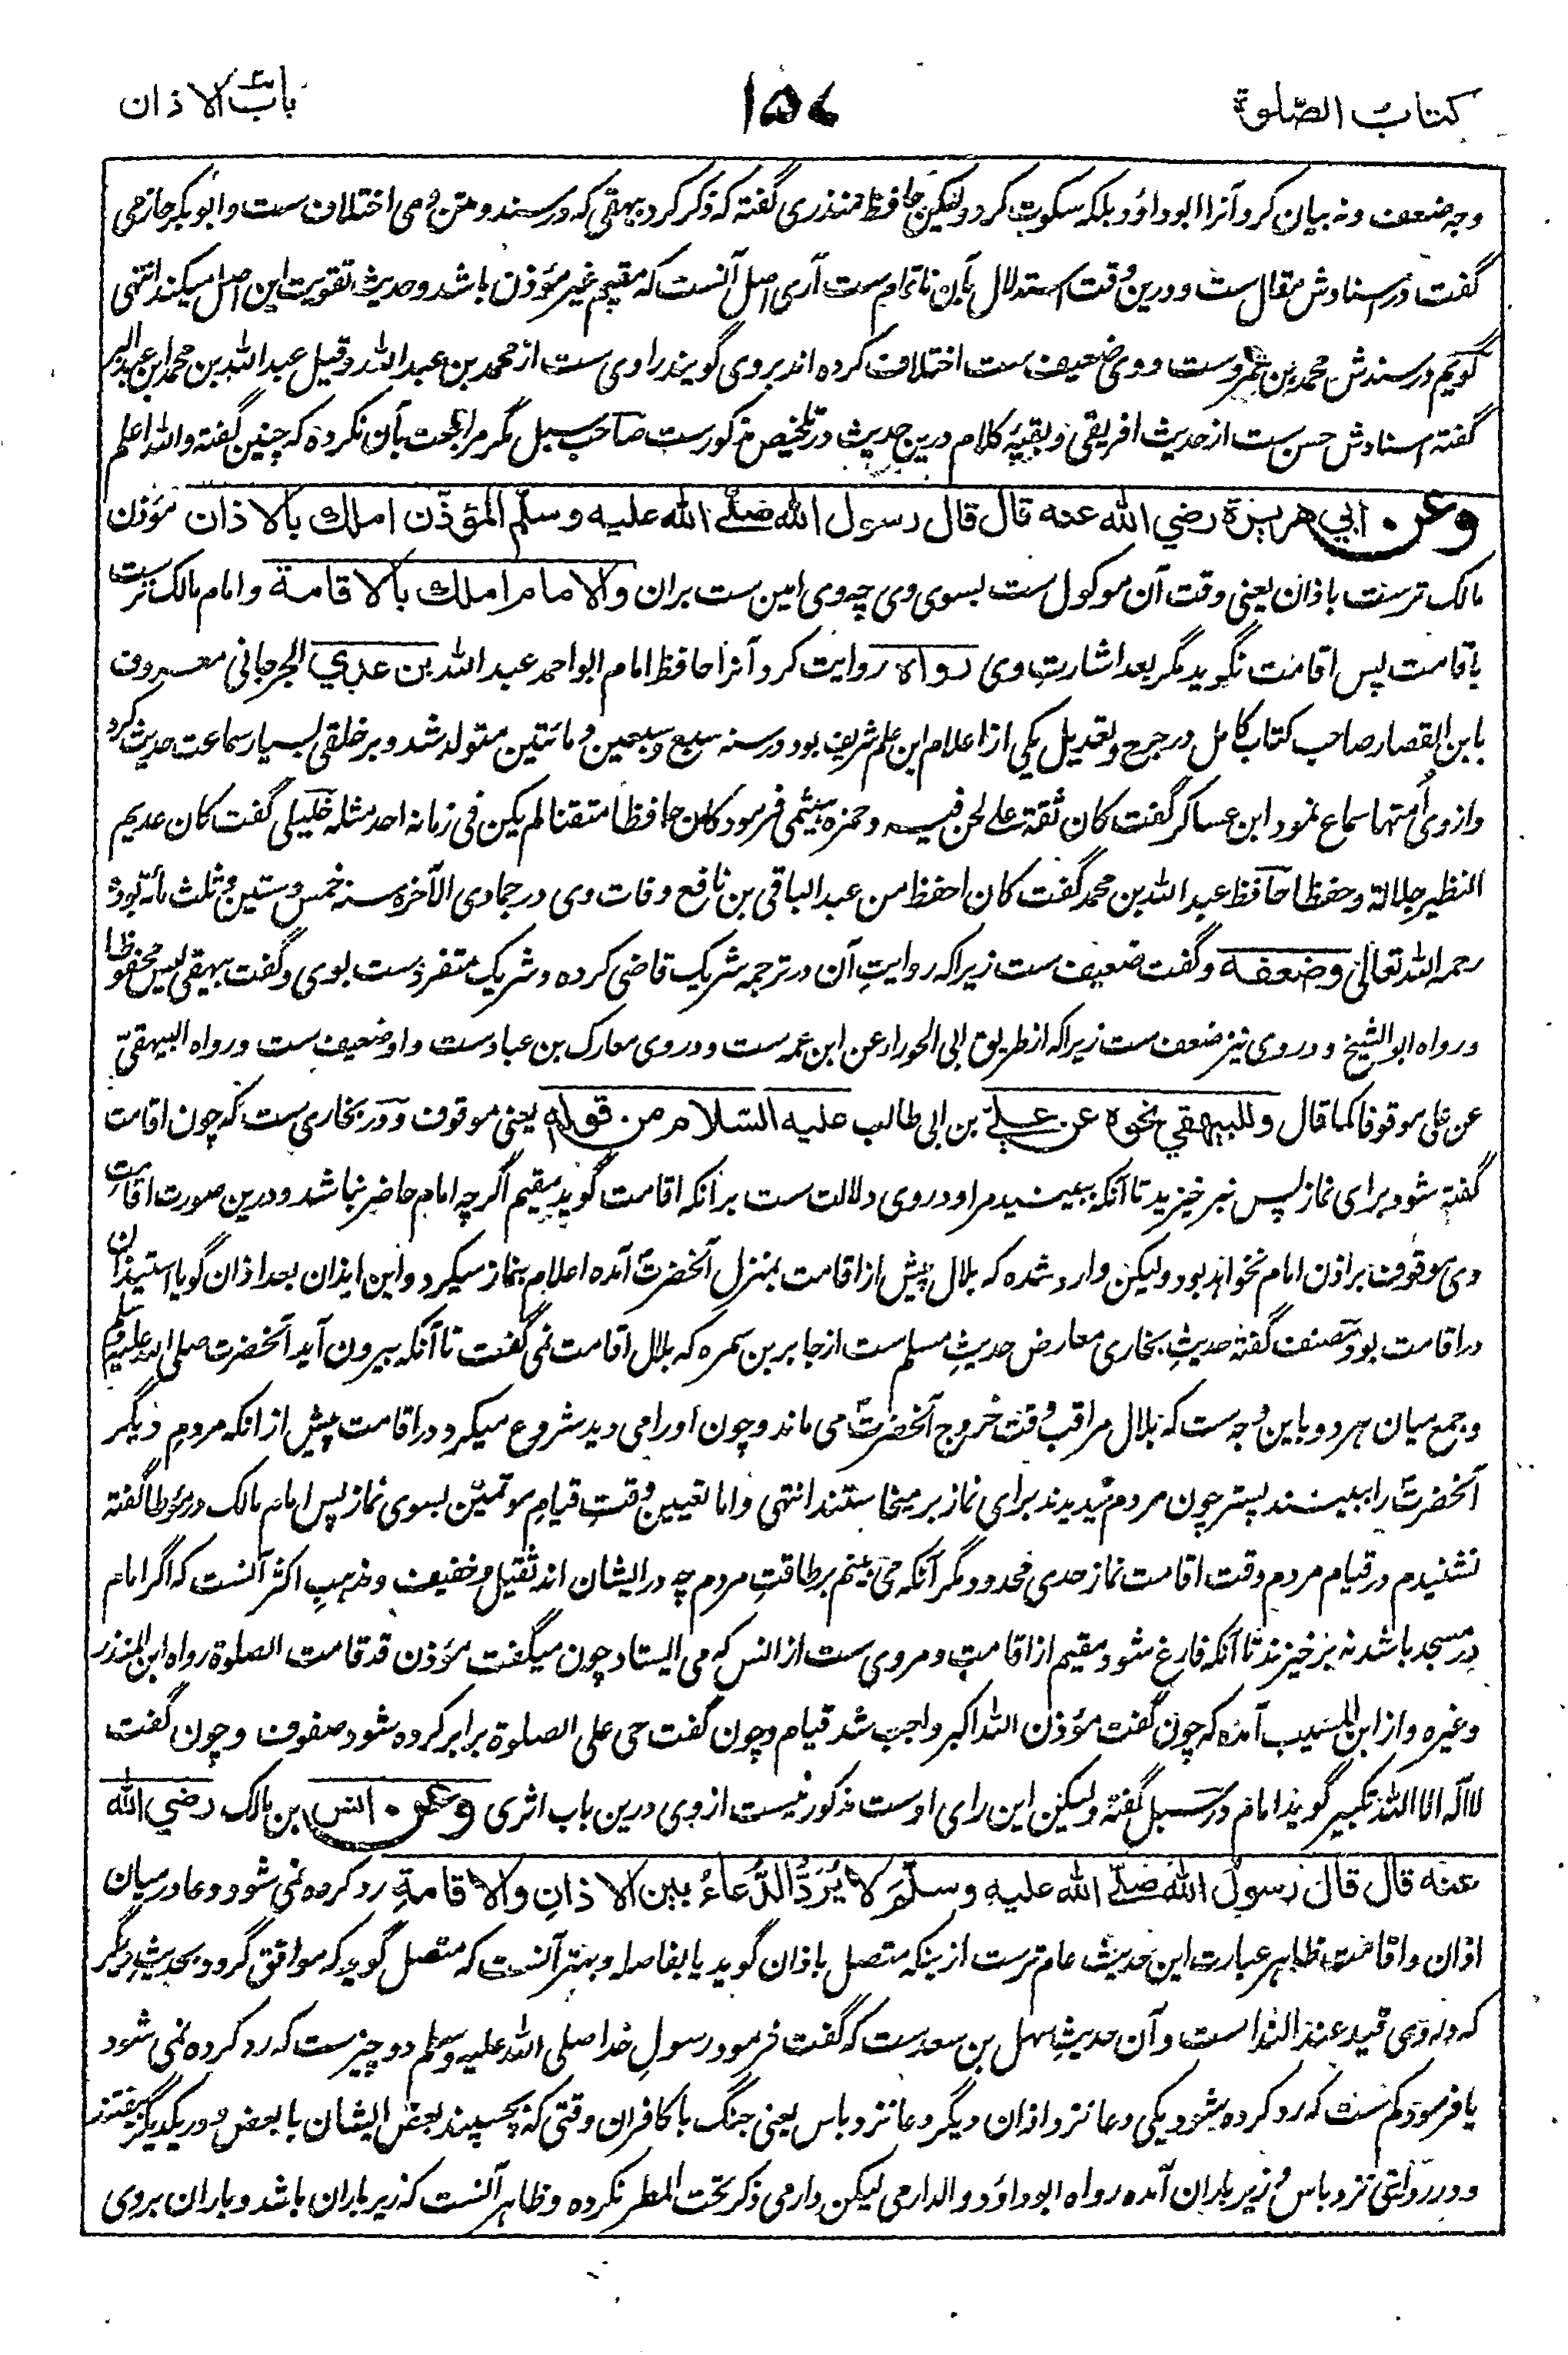 کتاب الصّلوة
۱۵۷
باب الاذان
وجه ضعف ونه بیان کرد آنرا ابوداؤد بلکه سکوت کرد ولیکن حافظ منذری گفته که ذکر کرد بیهقی که در سند و متن وی اختلاف ست و ابوبکر حازمی
گفت در اسنادش مقال ست و درین وقت استدلال بآن ناتمام ست آری اصل آنست که مقیم غیر مؤذن باشد و حدیث تقویت این اصل میکند انتهی
گویم در سندش محمد بن عمرو ست و وی ضعیف ست اختلاف کرده اند بروی گویند راوی ست از محمد بن عبدالله و قیل عبدالله بن محمد ابن عبدالبر
گفته اسنادش حسن ست از حدیث افریقی و بقیهٔ کلام درین حدیث در تلخیص مذکورست صاحب سبل مگر مراجعت بآن نکرده که چنین گفته والله اعلم
وعن ابي هريرة رضي الله عنه قال قال رسول الله صلے الله عليه وسلم المؤذّن املك بالاذان مؤذن
مالک ترست باذان یعنی وقت آن موکول ست بسوی وی چه وی امین ست بران والامام املك بالاقامة و امام مالک ترست
باقامت پس اقامت نگوید مگر بعد اشارت وی رواه روایت کرد آنرا حافظ امام ابو احمد عبد الله بن عدي الجرجانی معروف
بابن القصار صاحب کتاب کامل در جرح و تعدیل یکی از اعلام این علم شریف بود در سنه سبع و سبعین و مائتین متولد شد و بر خلقی بسیار سماعت حدیث کرد
و ازوی امتها سماع نمود ابن عساکر گفت کان ثقة علی لحن فیه و حمزه بیثمی فرمود کان حافظا متقنا لم یکن فی زمانه احد مثله خلیلی گفت کان عدیم
النظیر جلالة و حفظا حافظ عبد الله بن محمد گفت کان احفظ من عبد الباقی بن نافع وفات وی در جمادی الآخره سنه خمس و ستین و ثلث مائة بود
رحمه الله تعالی وضعفه و گفت ضعیف ست زیراکه روایت آن در ترجمه شریک قاضی کرده و شریک متفردست بوی و گفت بیهقی لیس محفوظا
و رواه ابو الشیخ و در وی نیز ضعف ست زیراکه از طریق ابی الحوراء عن ابن عمه ست و در وی معارک بن عبادست و او ضعیف ست و رواه البیهقیّ
عن علی موقوفا کما قال وللبيهقي نحوه عن عليّ بن ابی طالب عليه السّلام من قوله یعنی موقوف و در بخاری ست که چون اقامت
گفته شود برای نماز پس نبر خیزید تا آنکه ببینید مرا و در وی دلالت ست بر آنکه اقامت گوید مقیم اگرچه امام حاضر نباشد و درین صورت اقامت
وی موقوف بر اذن امام نخواهد بود و لیکن وارد شده که بلال پیش از اقامت بمنزل آنحضرت آمده اعلام بنماز میکرد و این ایذان بعد اذان گویا استیذان
در اقامت بود و مصنف گفته حدیث بخاری معارض حدیث مسلم ست از جابر بن سمره که بلال اقامت نمی گفت تا آنکه بیرون آید آنحضرت صلی الله علیه وسلم
و جمع میان هر دو باین وجه ست که بلال مراقب وقت خروج آنحضرت می ماند و چون او را می دید شروع میکرد در اقامت پیش از انکه مردم دیگر
آنحضرت را ببینند پستر چون مردم میدیدند برای نماز بر میخاستند انتهی و اما تعیین وقت قیام موتمین بسوی نماز پس امام مالک در مؤطا گفته
نشنیدم در قیام مردم وقت اقامت نماز حدی محدود مگر آنکه می بینم بر طاقت مردم چه در ایشان اند ثقیل و خفیف و مذهب اکثر آنست که اگر امام
در مسجد باشد نه بر خیزند تا آنکه فارغ شود مقیم از اقامت و مروی ست از انس که می ایستاد چون میگفت مؤذن قد قامت الصلوة رواه ابن المنذر
و غیره و از ابن المسیب آمده که چون گفت مؤذن الله اکبر واجب شد قیام و چون گفت حی علی الصلوة برابر کرده شود صفوف و چون گفت
لا اله الا الله تکبیر گوید امام در سبل گفته ولیکن این رای اوست مذکور نیست ازوی درین باب اثری وعن انس بن مالک رضي الله
عنه قال قال رسول الله صلے الله عليه وسلم لا يُرَدُّ الدُّعاءُ بين الاذانِ والاقامةِ رد کرده نمی شود دعا در میان
اذان و اقامت ظاهر عبارت این حدیث عام ترست ازینکه متصل باذان گوید یا بفاصله و بهتر آنست که متصل گوید که موافق گردد بحدیث دیگر
که در وی قید عند النداست و آن حدیث سهل بن سعدست که گفت فرمود رسول خدا صلی الله علیه وسلم دو چیزست که رد کرده نمی شود
یا فرمود کم ست که رد کرده شود یکی دعا نزد اذان دیگر دعا نزد باس یعنی جنگ با کافران وقتی که بچسپند بعض ایشان با بعض و در یکدیگر بیفتند
و در روایتی نزد باس و زیر باران آمده رواه ابو داؤد والدارمی لیکن دارمی ذکر تحت المطر نکرده و ظاهر آنست که زیر باران باشد و باران بروی